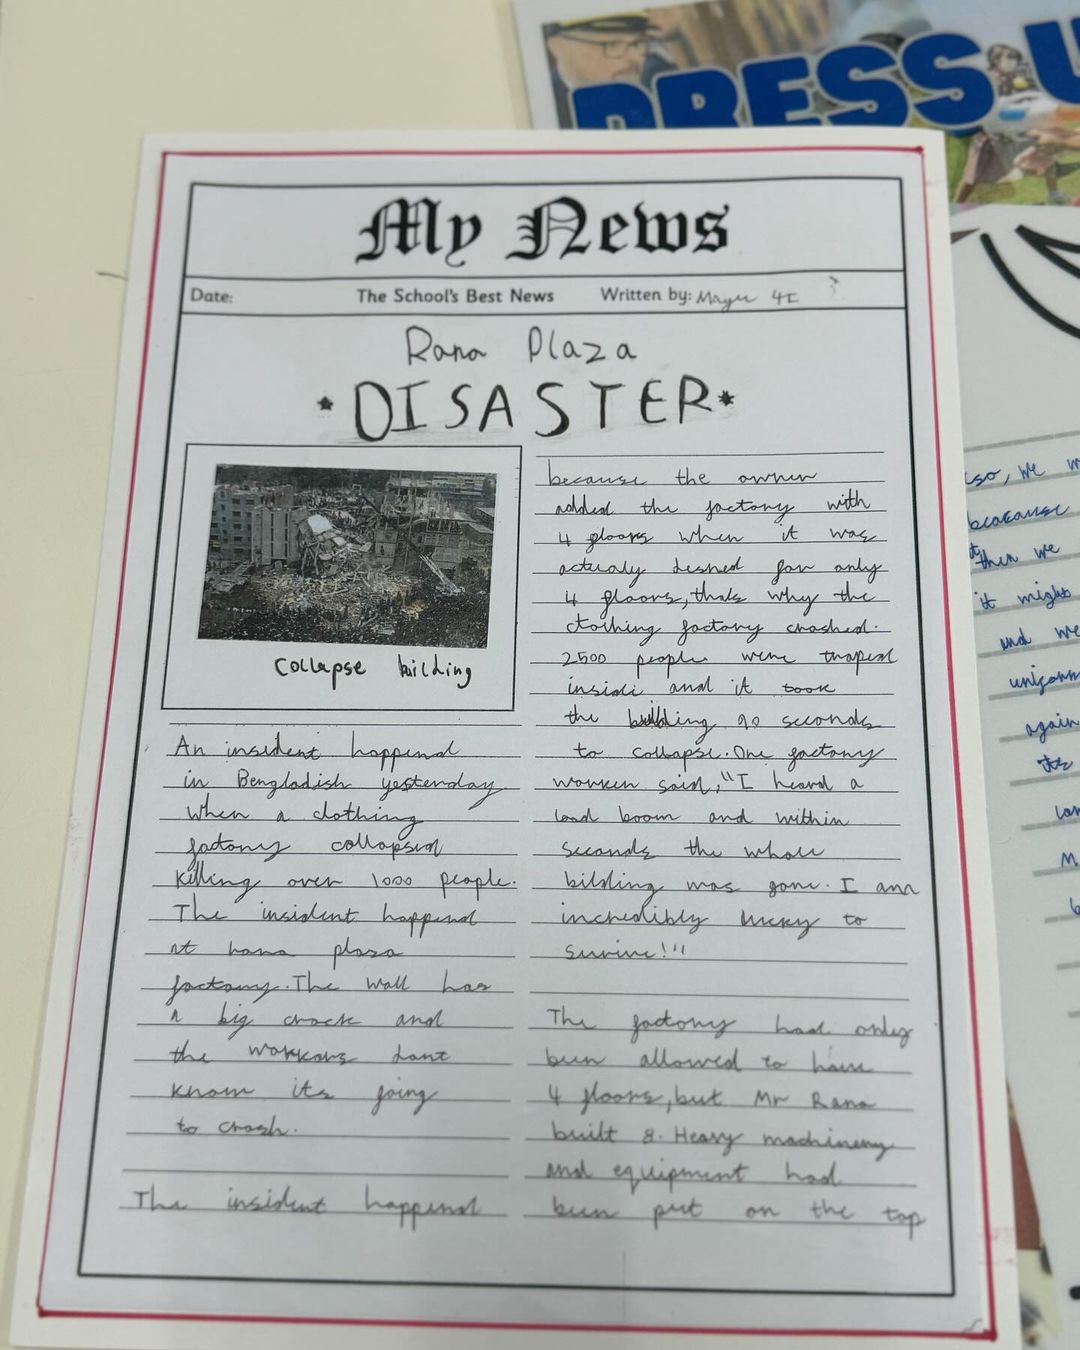 PRESS U
My News
Date:
The School's Best News
Written by: 4I
Rana Plaza
*DISASTER*
collapse building
An insident happend
in Bengladish yesterday
when a clothing
factory collapsed
killing over 1000 people.
The insident happend
at rana plaza
factory. The wall has
a big crack and
the workors dont
know its going
to crash.
The insident happend
because the owner
added the factory with
4 floors when it was
actualy desned for only
4 floors, thats why the
clothing factory crashed.
2500 people were traped
inside and it took
the building 90 seconds
to collapse. One factory
worker said, "I heard a
load boom and within
seconds the whole
bilding was gone. I am
incredibly lucky to
survive!"
The factory had only
been allowed to have
4 floors, but Mr Rana
built 8. Heavy machinery
and equipment had
been put on the top
so, we
beacause
then we
it might
and we
uniform
again
its